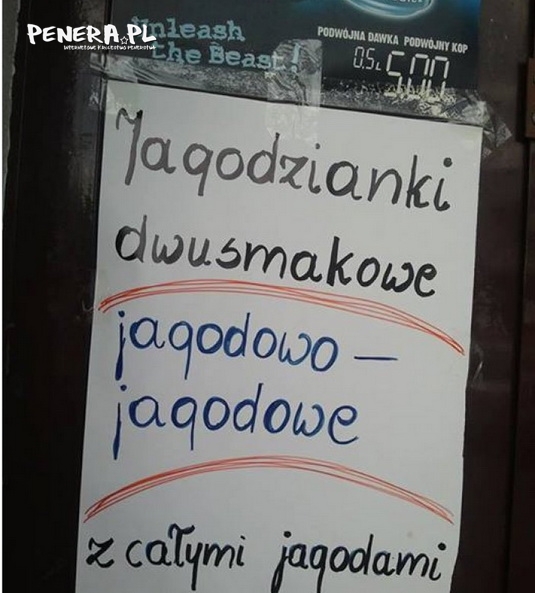 PENERA.PL
INTERNETOWE KRÓLESTWO PENERSTWA
Unleash
the Beast!
PODWÓJNA DAWKA PODWÓJNY KOP
0,5L 5,00
Jagodzianki
dwusmakowe
jagodowo –
jagodowe
z całymi jagodami